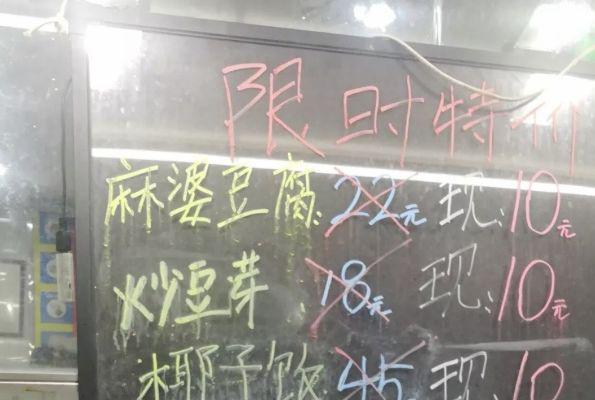 限时特价
麻婆豆腐:22元 现:10元
炒豆芽 18元 现:10元
椰子饭 45 现:10